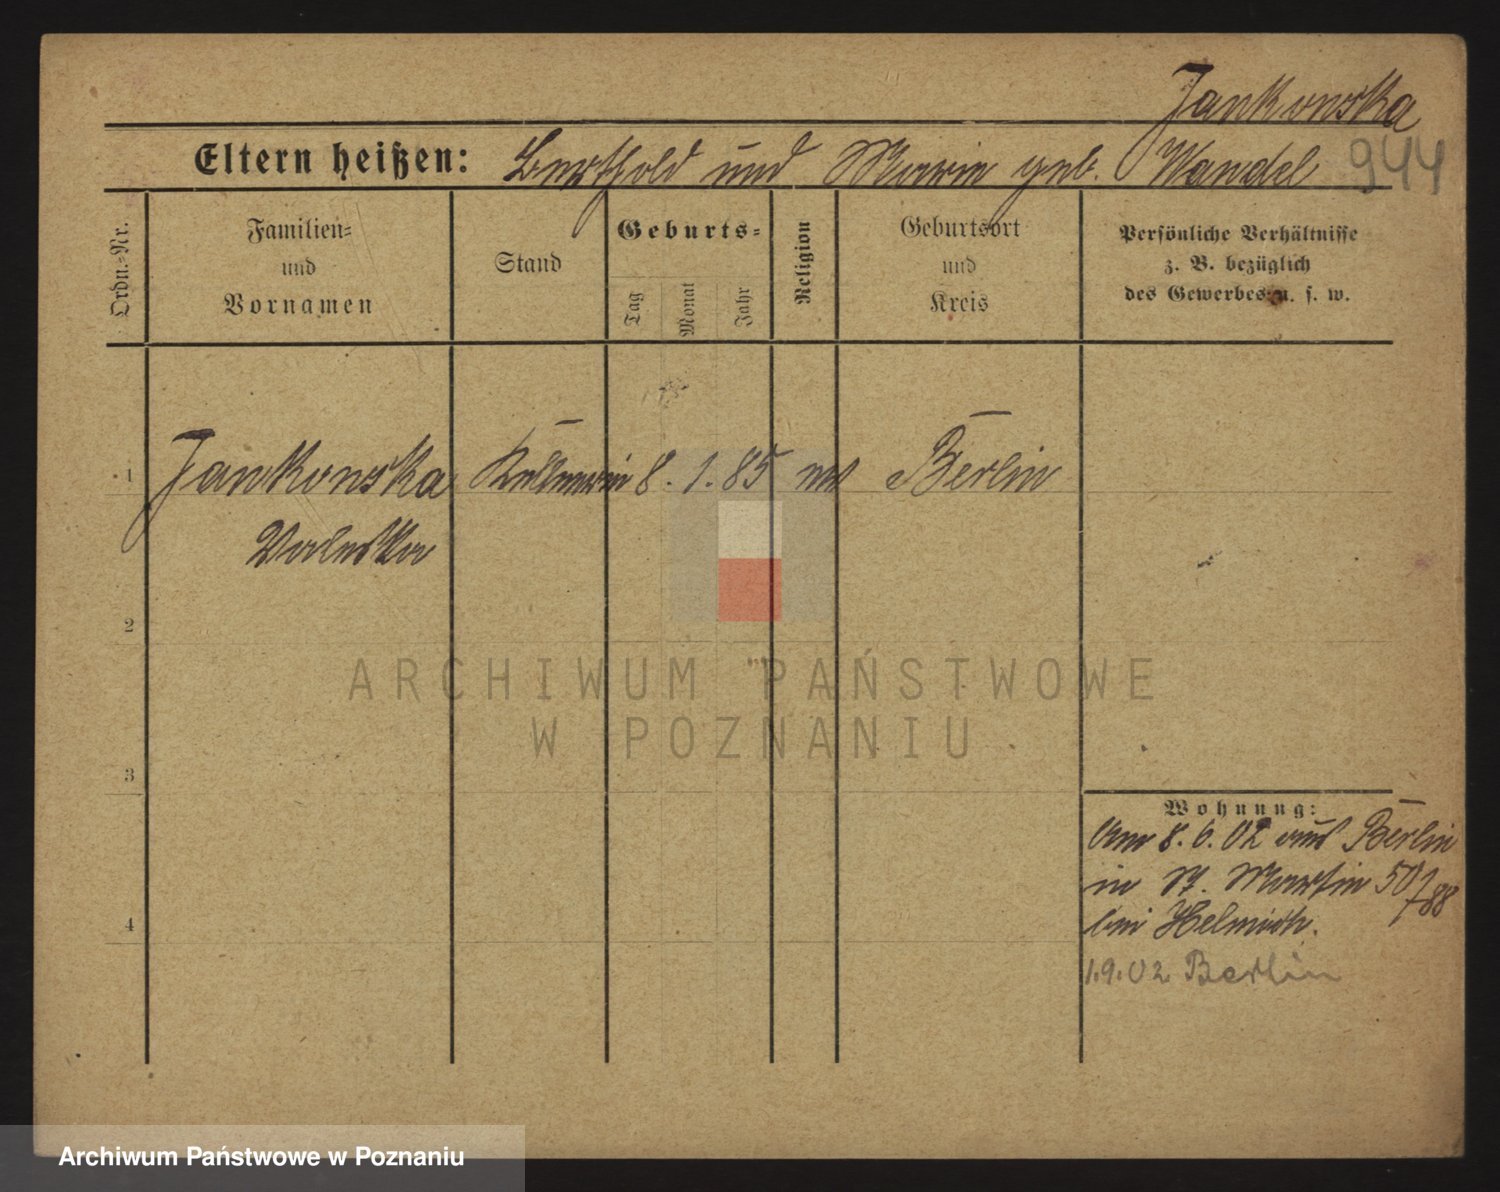 Jankowska
Eltern heißen: Berthold und Marie geb. Wandel 944
Ordn.-Nr.
Familien-
und
Vornamen
Stand
Geburts-
Tag
Monat
Jahr
Religion
Geburtsort
und
Kreis
Persönliche Verhältnisse
z. B. bezüglich
des Gewerbes u. s. w.
1 Jankowska Kellnerin 8. 1. 85 Berlin
Valeska
2
ARCHIWUM PAŃSTWOWE
W POZNANIU
3
Wohnung:
Am 8.6.02 aus Berlin
in St. Martin 50/788
4
bei Helmich.
1.9.02 Berlin
Archiwum Państwowe w Poznaniu